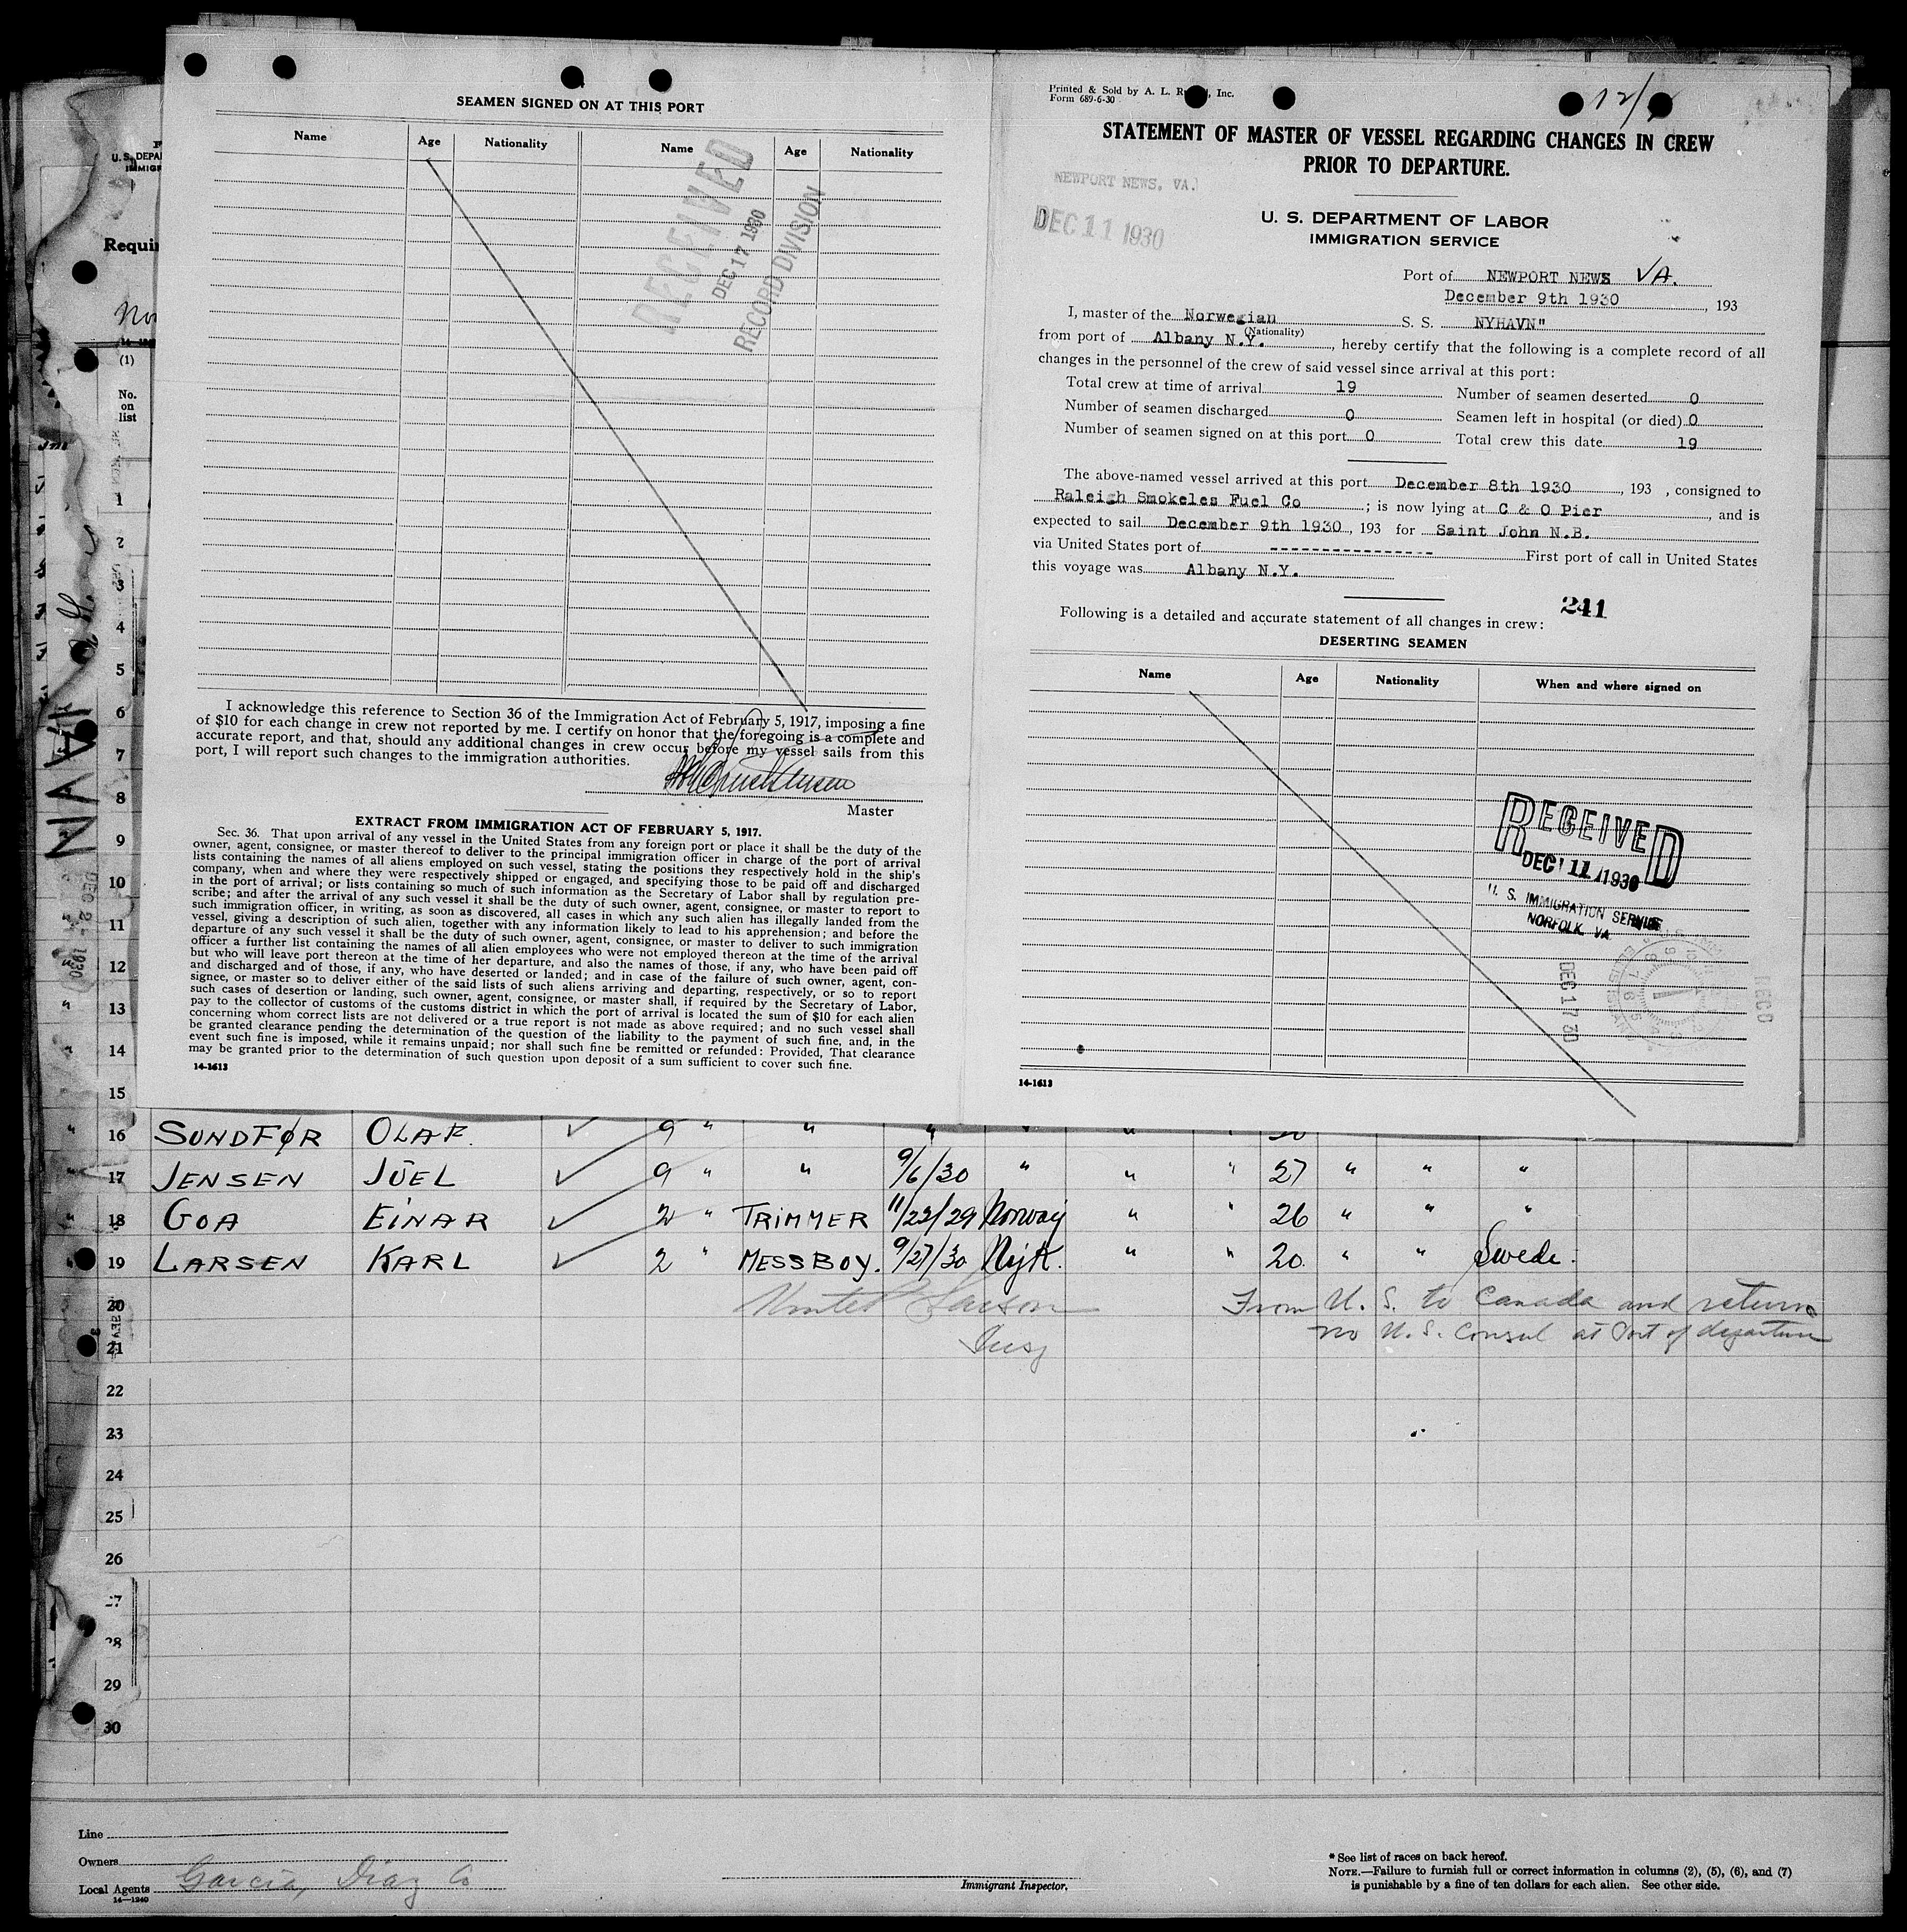 SEAMEN SIGNED ON AT THIS PORT
Name Age Nationality Name Age Nationality
RECEIVED
DEC 17 1930
RECORD DIVISION
I acknowledge this reference to Section 36 of the Immigration Act of February 5, 1917, imposing a fine
of $10 for each change in crew not reported by me. I certify on honor that the foregoing is a complete and
accurate report, and that, should any additional changes in crew occur before my vessel sails from this
port, I will report such changes to the immigration authorities.
Master
EXTRACT FROM IMMIGRATION ACT OF FEBRUARY 5, 1917.
Sec. 36. That upon arrival of any vessel in the United States from any foreign port or place it shall be the duty of the
owner, agent, consignee, or master thereof to deliver to the principal immigration officer in charge of the port of arrival
lists containing the names of all aliens employed on such vessel, stating the positions they respectively hold in the ship's
company, when and where they were respectively shipped or engaged, and specifying those to be paid off and discharged
in the port of arrival; or lists containing so much of such information as the Secretary of Labor shall by regulation pre-
scribe; and after the arrival of any such vessel it shall be the duty of such owner, agent, consignee, or master to report to
such immigration officer, in writing, as soon as discovered, all cases in which any such alien has illegally landed from the
vessel, giving a description of such alien, together with any information likely to lead to his apprehension; and before the
departure of any such vessel it shall be the duty of such owner, agent, consignee, or master to deliver to such immigration
officer a further list containing the names of all alien employees who were not employed thereon at the time of the arrival
but who will leave port thereon at the time of her departure, and also the names of those, if any, who have been paid off
and discharged and of those, if any, who have deserted or landed; and in case of the failure of such owner, agent, con-
signee, or master so to deliver either of the said lists of such aliens arriving and departing, respectively, or so to report
such cases of desertion or landing, such owner, agent, consignee, or master shall, if required by the Secretary of Labor,
pay to the collector of customs of the customs district in which the port of arrival is located the sum of $10 for each alien
concerning whom correct lists are not delivered or a true report is not made as above required; and no such vessel shall
be granted clearance pending the determination of the question of the liability to the payment of such fine, and, in the
event such fine is imposed, while it remains unpaid; nor shall such fine be remitted or refunded: Provided, That clearance
may be granted prior to the determination of such question upon deposit of a sum sufficient to cover such fine.
14-1613
Printed & Sold by A. L. Inc.
Form 689-6-30
12/
STATEMENT OF MASTER OF VESSEL REGARDING CHANGES IN CREW
PRIOR TO DEPARTURE.
NEWPORT NEWS, VA.
DEC 11 1930
U. S. DEPARTMENT OF LABOR
IMMIGRATION SERVICE
Port of NEWPORT NEWS VA.
December 9th 1930, 193
I, master of the Norwegian S. S. NYHAVN"
(Nationality)
from port of Albany N.Y., hereby certify that the following is a complete record of all
changes in the personnel of the crew of said vessel since arrival at this port:
Total crew at time of arrival 19 Number of seamen deserted 0
Number of seamen discharged 0 Seamen left in hospital (or died) 0
Number of seamen signed on at this port 0 Total crew this date 19
The above-named vessel arrived at this port December 8th 1930, 193 , consigned to
Raleigh Smokeles Fuel Co ; is now lying at C & O Pier, and is
expected to sail December 9th 1930, 193 for Saint John N.B.
via United States port of ---------------- First port of call in United States
this voyage was Albany N.Y.
241
Following is a detailed and accurate statement of all changes in crew:
DESERTING SEAMEN
Name Age Nationality When and where signed on
RECEIVED
DEC 11 1930
U. S. IMMIGRATION SERVICE
NORFOLK, VA
DEC 17 30
RECD
14-1613
Requi
(1)
No.
on
list
1
2
3
4
5
6
7
8
9
10
11
12
13
14
15
16 SUNDFØR OLAF. ✓ 9 " " " " "
17 JENSEN JUEL ✓ 9 " " 9/6/30 " " " 27 " " "
18 GOA EINAR ✓ 2 " TRIMMER 11/22/29 Norway " " 26 " " "
19 LARSEN KARL ✓ 2 " MESSBOY. 9/27/30 " " 20. " " Swede.
20 From U. S. to Canada and return
21 no U. S. Consul at Port of departure
22
23
24
25
26
27
28
29
30
Line
Owners
Local Agents Garcia, Diaz Co
14-1240
Immigrant Inspector.
* See list of races on back hereof.
NOTE.—Failure to furnish full or correct information in columns (2), (5), (6), and (7)
is punishable by a fine of ten dollars for each alien. See other side.